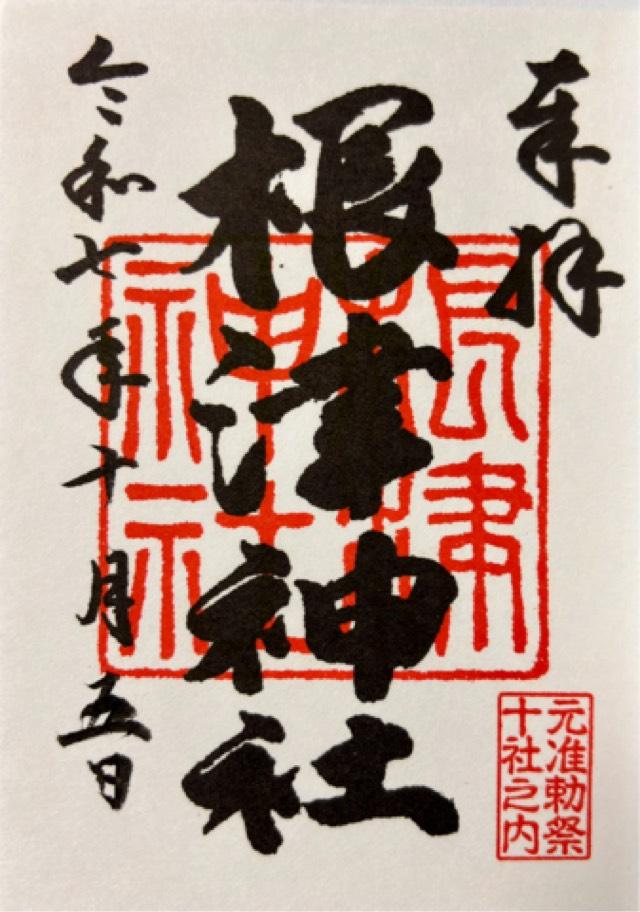 奉拝
根津神社
令和七年十月五日
根津
神社
元准勅祭
十社之内